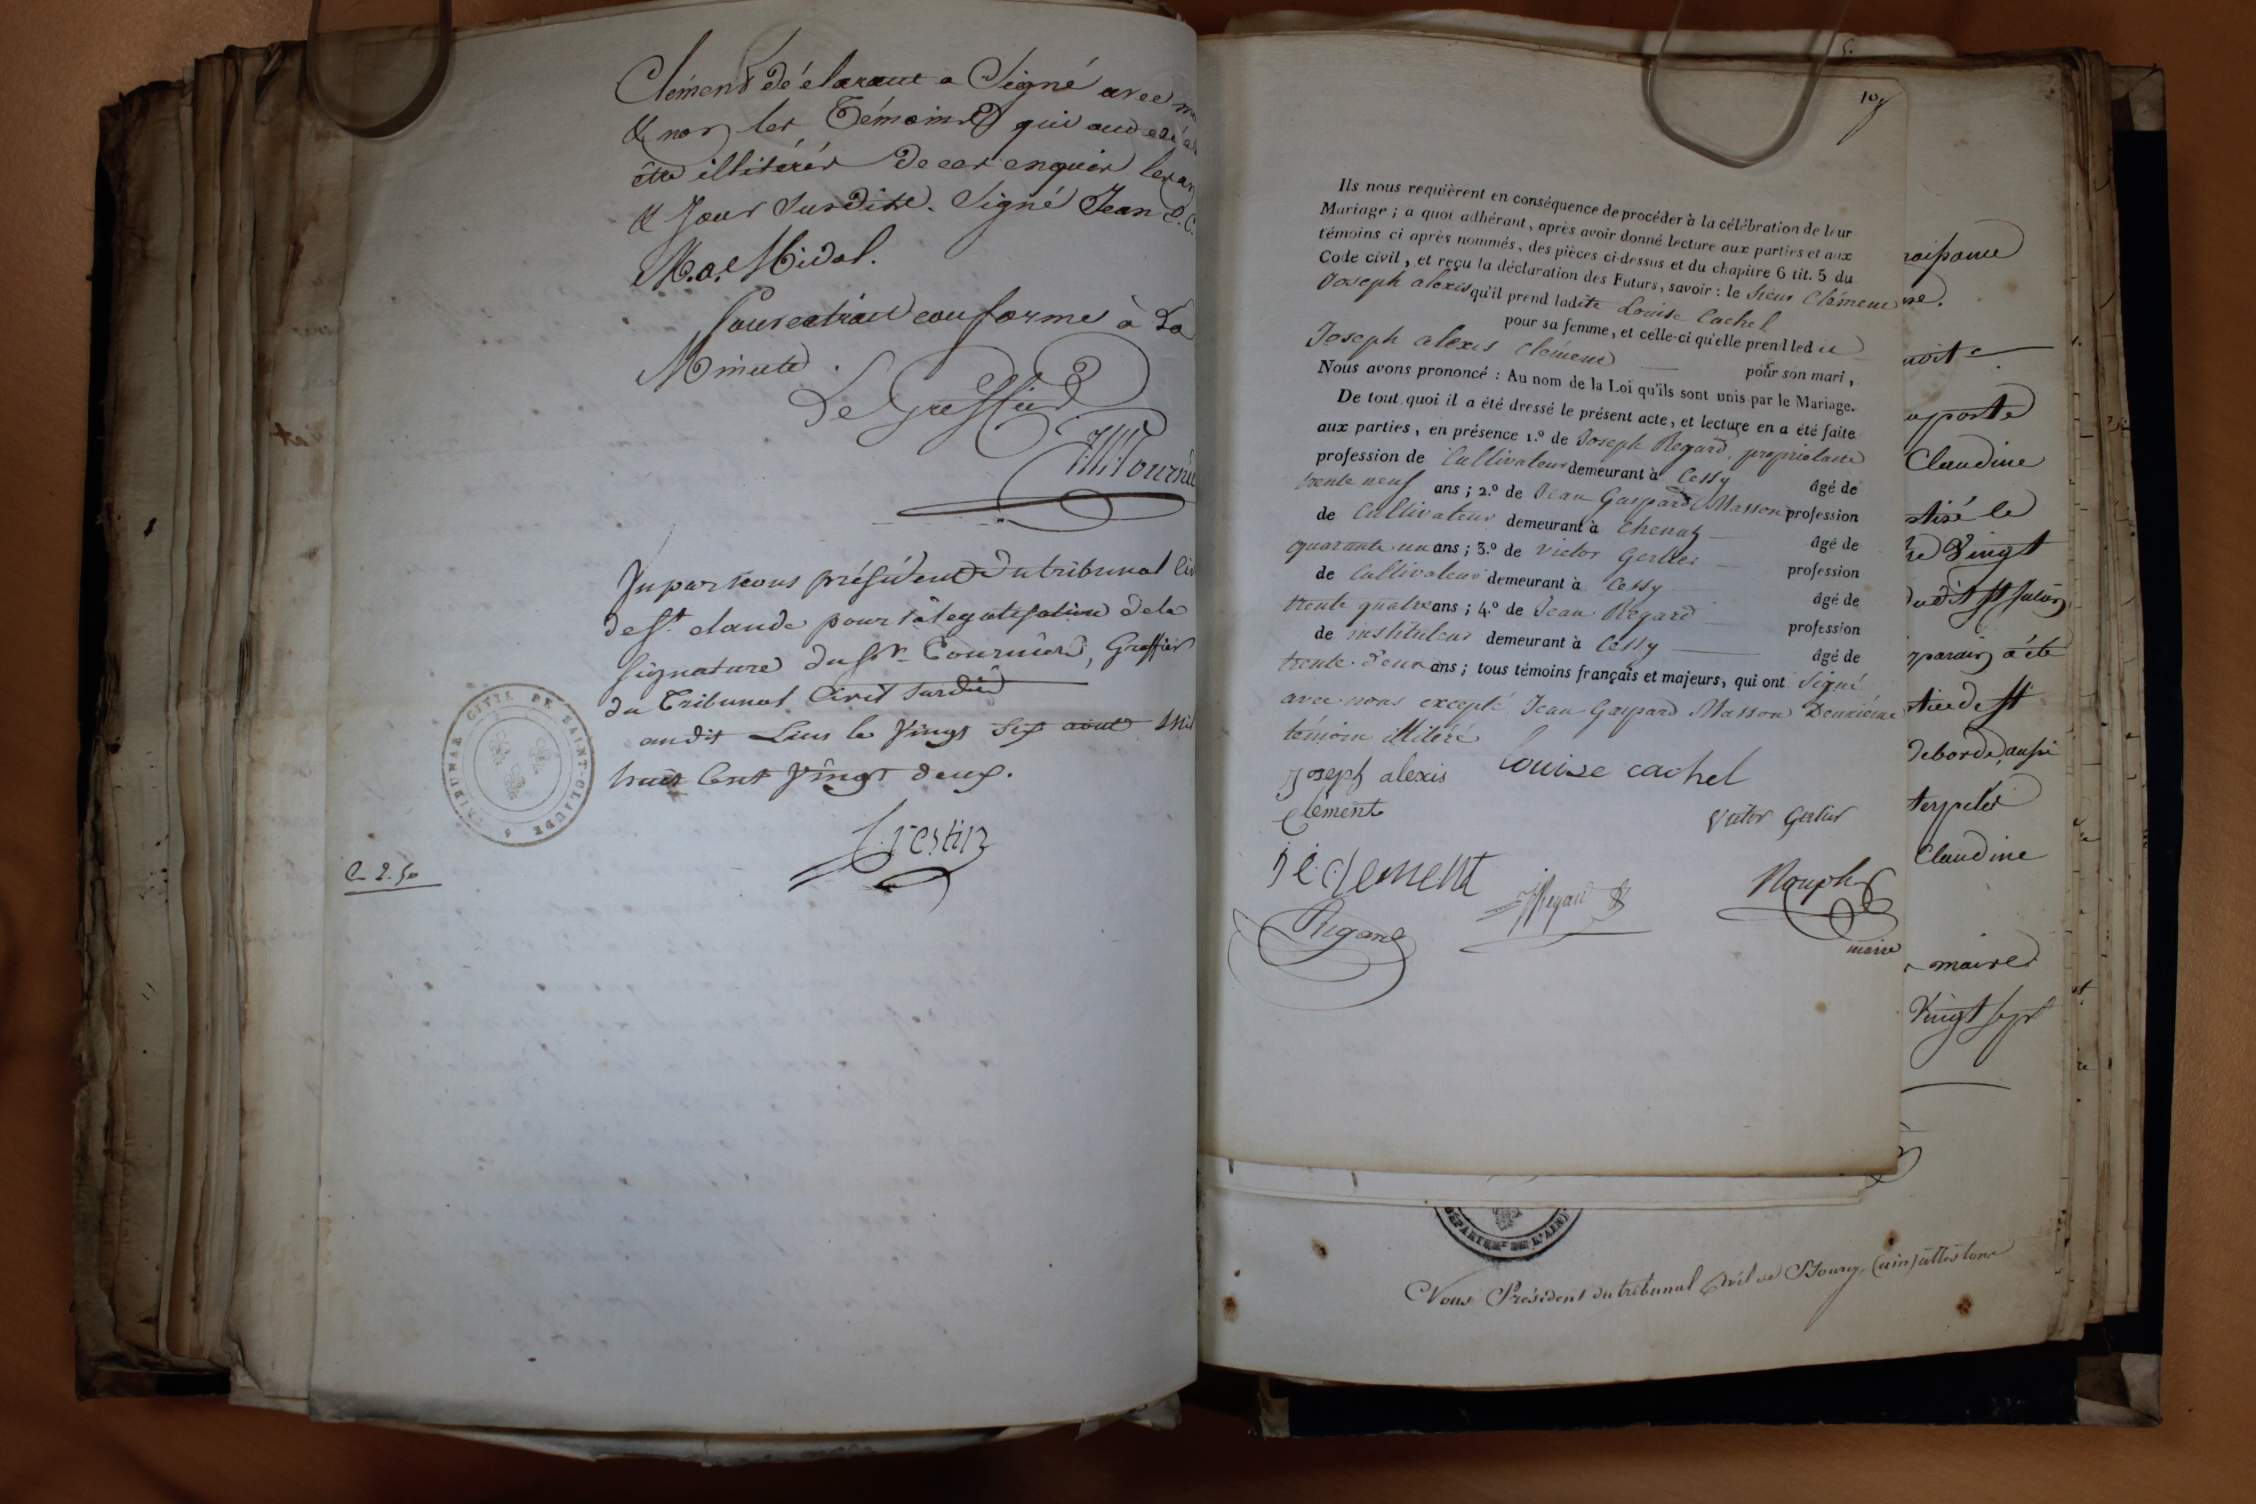 Clément déclarant a Signé avec
& non les Témoins qui
être illitérés de ce enquis les an
& Jour Susdits. Signé Jean C.
M. a. Midol.
Pour extrait conforme à La
Minute.
Le Greffier
Tournier
Vu par nous président du tribunal Civ
de St. claude pour la légalisation de la
signature du Sr. Tournier, Greffier
du Tribunal Civil susdit
audit Lieu le Vingt Six août Mil
huit Cent Vingt deux.
Crestin
TRIBUNAL CIVIL DE SAINT-CLAUDE
C 2. 50
Ils nous requièrent en conséquence de procéder à la célébration de leur
Mariage ; a quoi adhérant, après avoir donné lecture aux parties et aux
témoins ci après nommés, des pièces ci-dessus et du chapitre 6 tit. 5 du
Code civil, et reçu la déclaration des Futurs, savoir : le Sieur Clément
Joseph alexis qu'il prend ladite Louise Cachel
pour sa femme, et celle-ci qu'elle prend led it
Joseph alexis clément pour son mari,
Nous avons prononcé : Au nom de la Loi qu'ils sont unis par le Mariage.
De tout quoi il a été dressé le présent acte, et lecture en a été faite
aux parties, en présence 1.º de Joseph Regard, propriétaire
profession de Cultivateur demeurant à Cessy âgé de
trente neuf ans ; 2.º de Jean Gaspard Masson profession
de Cultivateur demeurant à Chenaz âgé de
quarante un ans ; 3.º de Victor Gerlier profession
de Cultivateur demeurant à Cessy âgé de
trente quatre ans ; 4.º de Jean Régard profession
de instituteur demeurant à Cessy âgé de
trente deux ans ; tous témoins français et majeurs, qui ont Signé
avec nous excepté Jean Gaspard Masson Deuxième
témoin illitéré
Joseph alexis Louise cachel
Clément
Victor Gerlier
j é clement
Regard
JRegard
maire
naissance
Claudine
Vingt
a été
Claudine
maire
Vingt sept
DÉPARTEM.T DE L'AIN
Nous Président du tribunal Civil de Bourg (ain) attestons